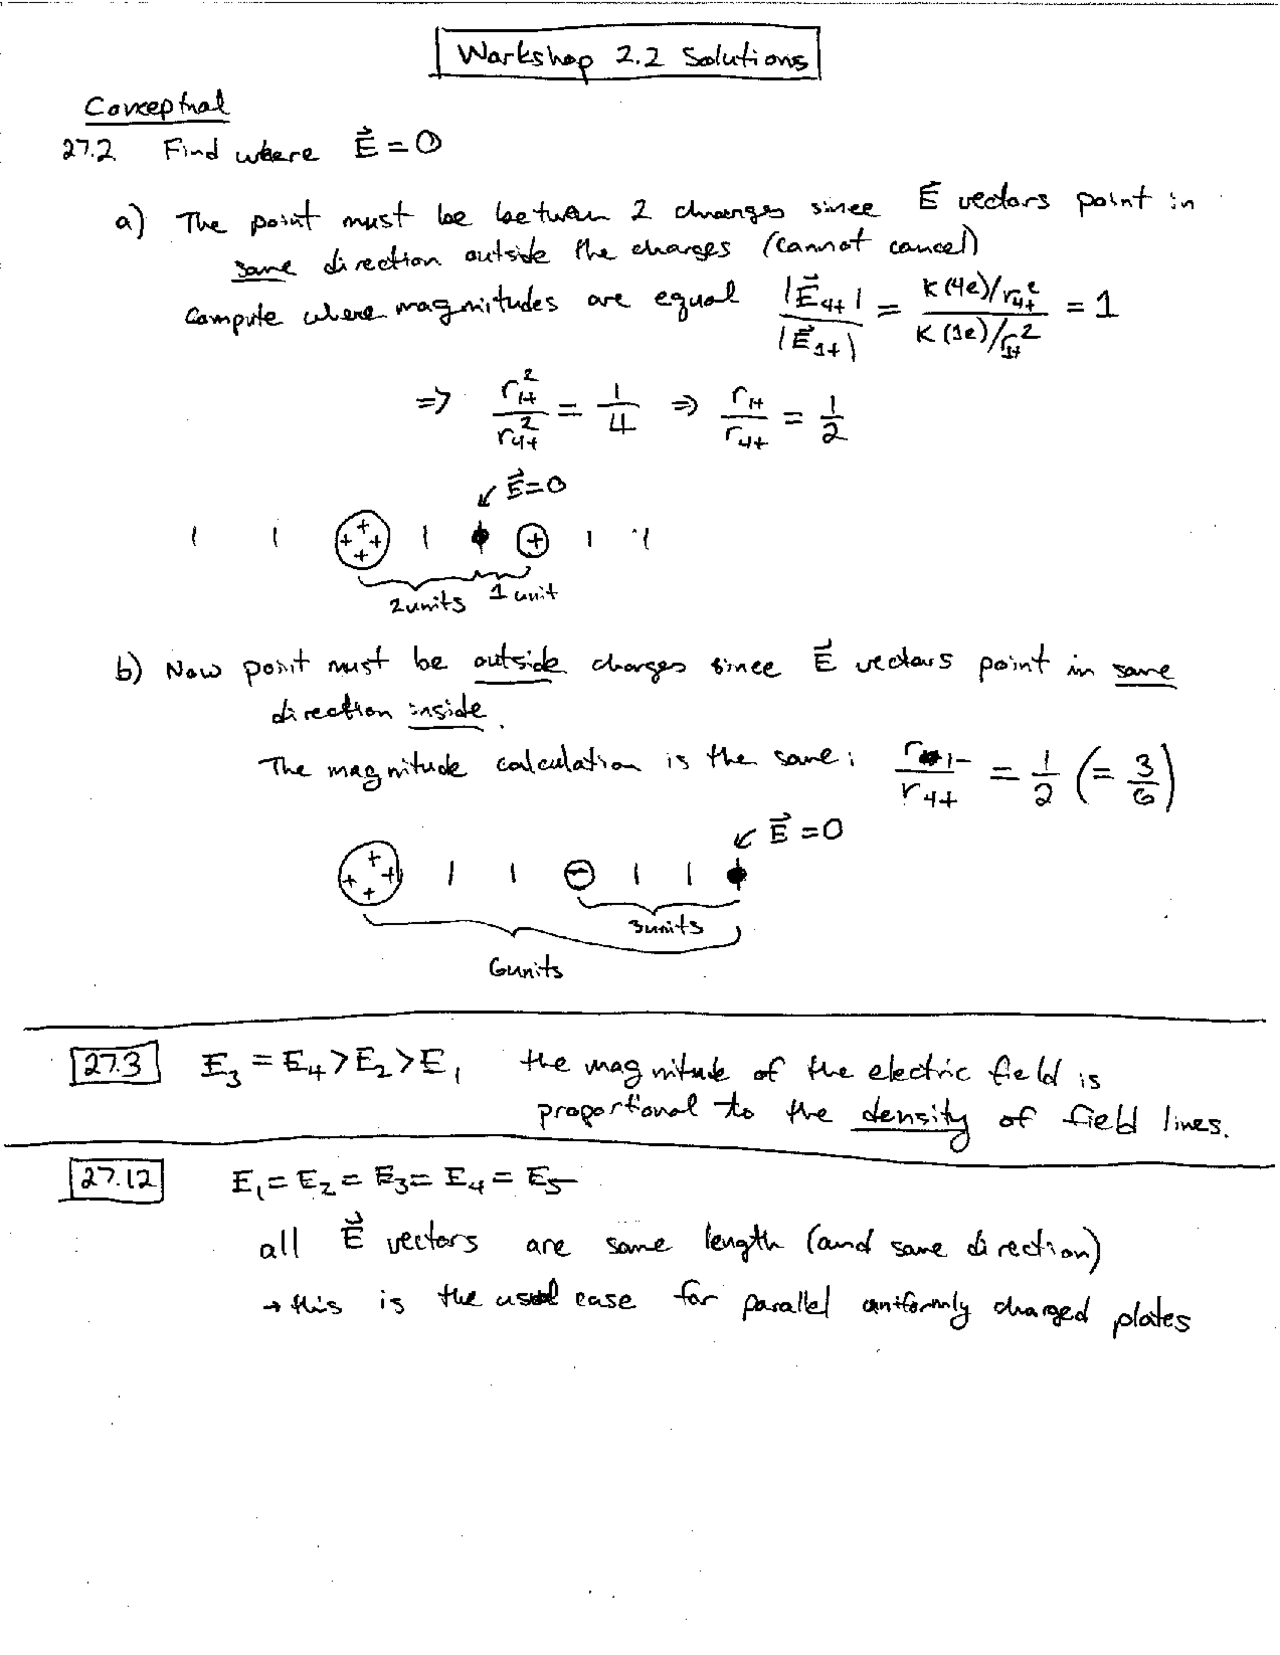 Workshop 2.2 Solutions
Conceptual
27.2 Find where E⃗ = 0
a) The point must be between 2 charges since E⃗ vectors point in
same direction outside the charges (cannot cancel)
Compute where magnitudes are equal |E⃗4+| / |E⃗1+| = K(4e)/r4+² / K(1e)/r1+² = 1
⇒ r1+² / r4+² = 1/4 ⇒ r1+ / r4+ = 1/2
↙ E⃗=0
| | ++++ | + | |
2 units 1 unit
b) Now point must be outside charges since E⃗ vectors point in same
direction inside.
The magnitude calculation is the same: r1- / r4+ = 1/2 (= 3/6)
↙ E⃗ = 0
++++ | | − | |
3 units
6 units
27.3 E3 = E4 > E2 > E1 the magnitude of the electric field is
proportional to the density of field lines.
27.12 E1 = E2 = E3 = E4 = E5
all E⃗ vectors are same length (and same direction)
→ this is the usual case for parallel uniformly charged plates